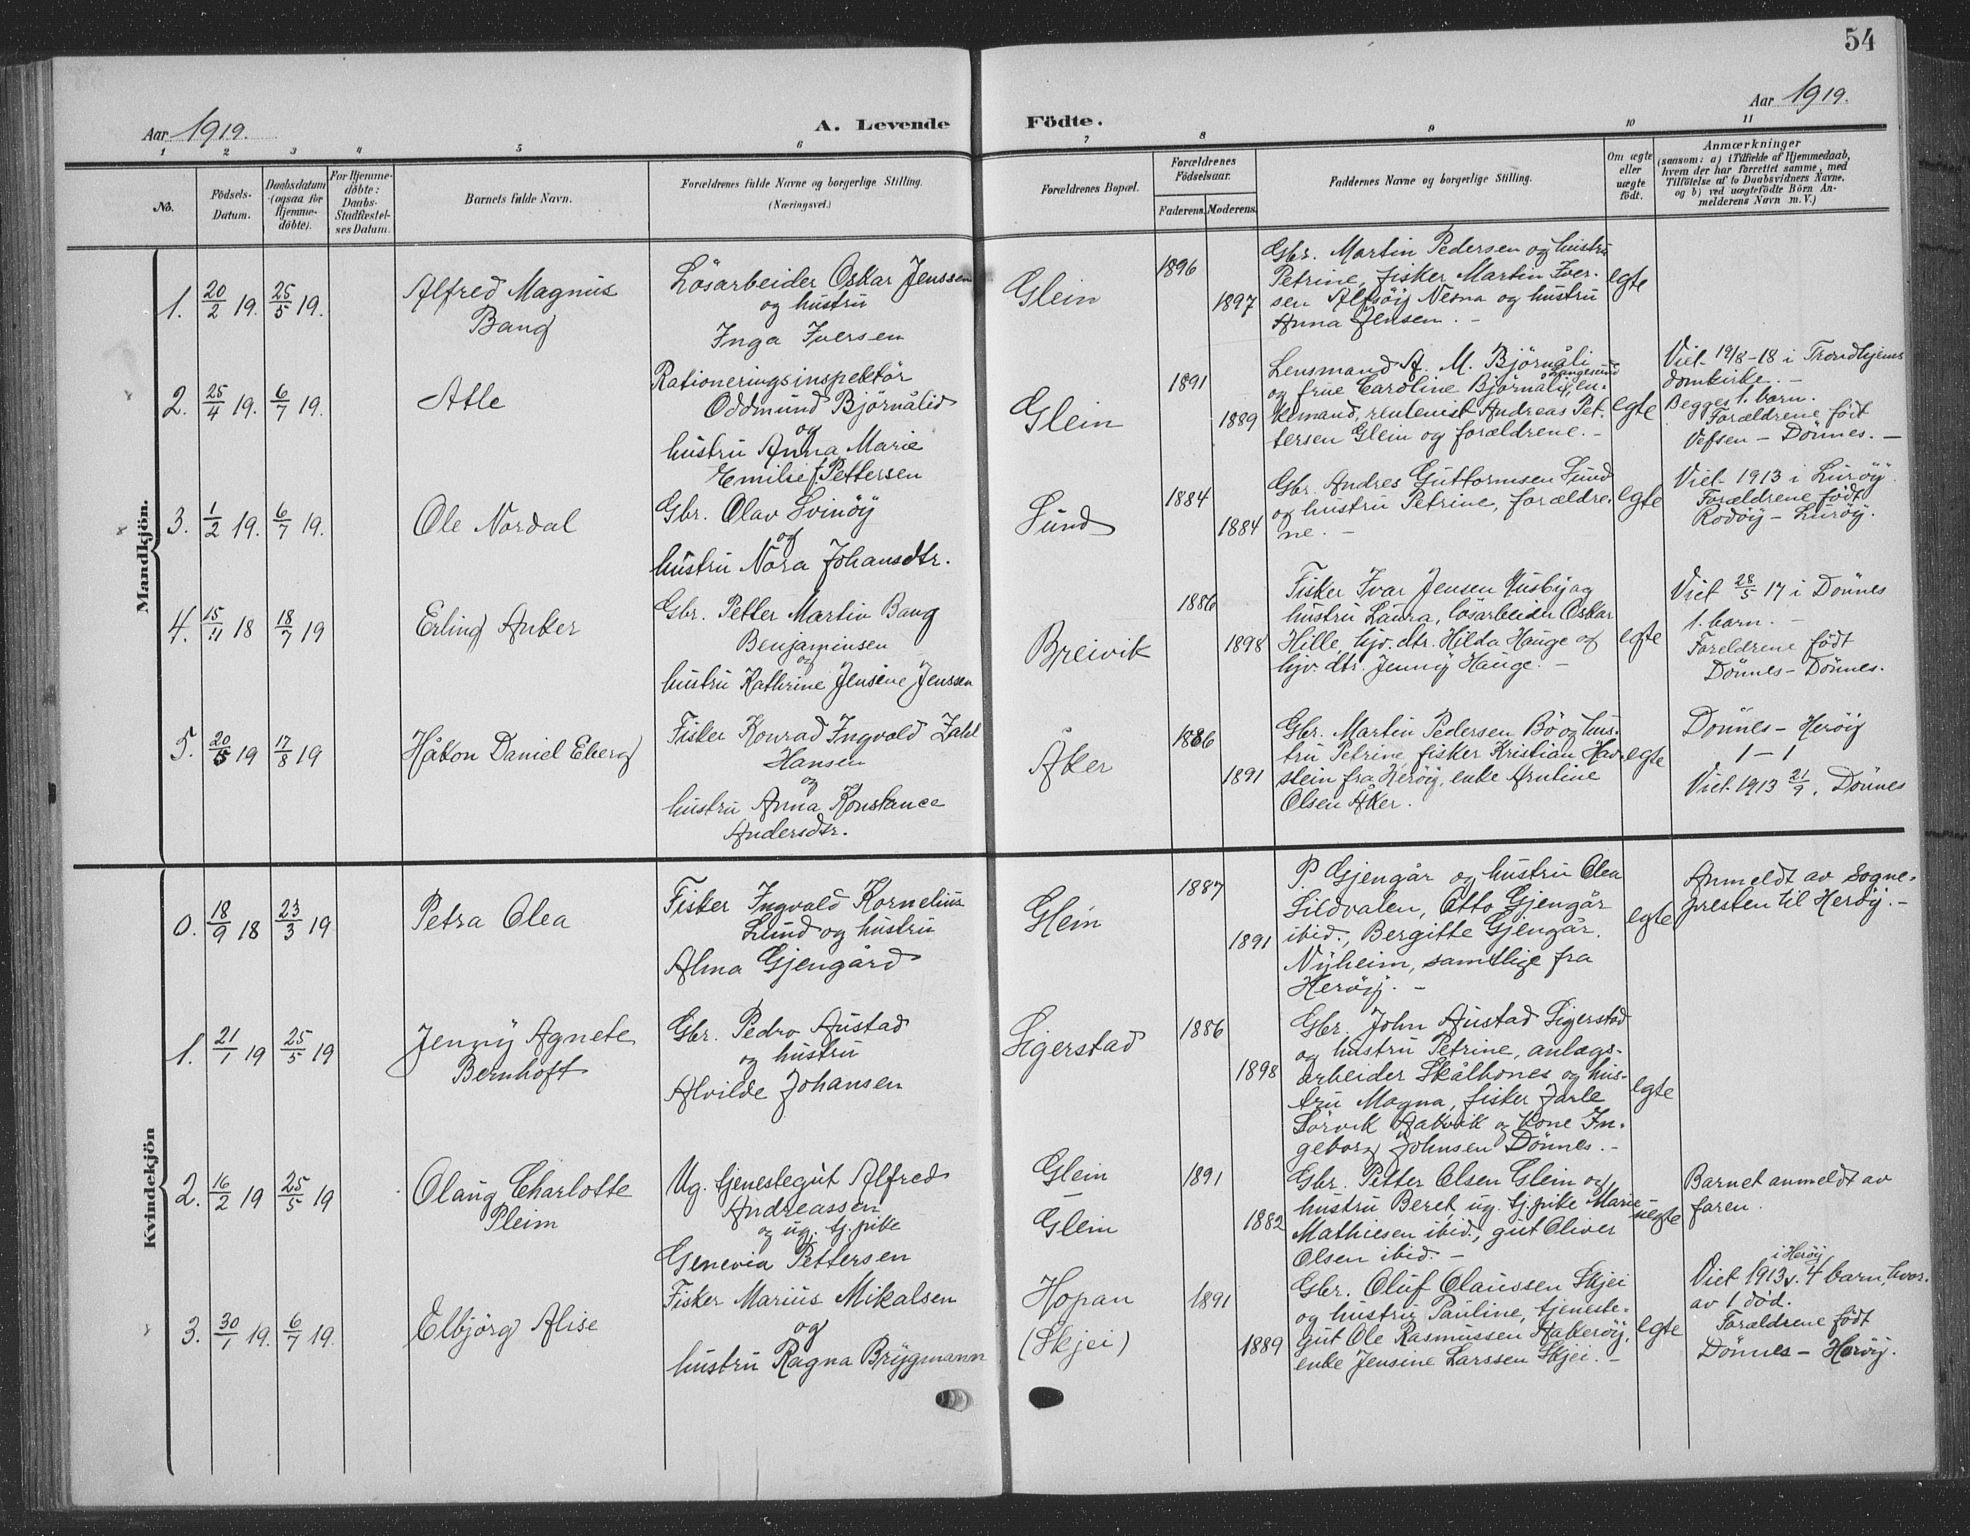 54
Aar 1919.
A. Levende
Födte.
Aar 1919.
1 2 3 4 5 6 7 8 9 10 11
No.
Födsels-
Datum.
Daabsdatum
(ogsaa for
Hjemme-
döbte).
For Hjemme-
döbte:
Daabs-
Stadfæstel-
ses Datum.
Barnets fulde Navn.
Forældrenes fulde Navne og borgerlige Stilling.
(Næringsvei.)
Forældrenes Bopæl.
Forældrenes
Födselsaar.
Faderens. Moderens.
Faddernes Navne og borgerlige Stilling.
Om ægte
eller
uægte
födt.
Anmærkninger
(saasom: a) i Tilfælde af Hjemmedaab,
hvem der har forrettet samme, med
Tilföielse af to Daabsvidners Navne.
og b) ved uægtefödte Börn An-
melderens Navn m. V.)
Mandkjön.
1. 20/2 19. 25/5 19.
Alfred Magnus
Bang
Lösarbeider Oskar Jenssen
og hustru
Inga Iversen
Glein
1896
1897
Gbr. Martin Pedersen og hustru
Petrine, fisker Martin Iver-
sen Alfsöy Nesna og hustru
Anna Jensen. -
egte
2. 25/4 19. 6/7 19.
Atle
Rationeringsinspektör
Oddmund Björnålid
og
hustru Anna Marie
Emilie f. Pettersen
Glein
1891
1889
Lensmand A. M. Björnåli
og frue Caroline Björnåli, Langesund en-
kemand, rentenist Andreas Pet-
tersen Glein og forældrene. -
egte
Viet 19/8-18 i Trondhjems
domkirke. -
Begges 1. barn.
Forældrene födt
Vefsen - Dönnes. -
3. 1/2 19. 6/7 19.
Ole Nordal
Gbr. Olav Svinöy
og
hustru Nora Johansdtr.
Sund
1884
1884
Gbr. Andres Guttormsen Sund
og hustru Petrine, forældre-
ne. -
egte
Viet 1913 i Luröy.
Forældrene födt
Rodöy - Luröy.
4. 15/11 18 18/7 19
Erling Anker
Gbr. Petter Martin Bang
Benjaminsen
og
hustru Kathrine Jensine Jenssen
Breivik
1886
1898
Fisker Ivar Jensen Husby og
hustru Laura, lösarbeider Oskar
Hille, hjv. dtr. Hilda Hauge og
hjv. dtr. Jenny Hauge. -
egte
Viet 28/5 17 i Dönnes
1. barn. -
Foreldrene födt
Dönnes - Dönnes.
5. 20/5 19 17/8 19
Håkon Daniel Eberg
Fisker Konrad Ingvald Zahl
Hansen
og
hustru Anna Konstance
Andersdtr.
Åker
1886
1891
Gbr. Martin Pedersen Bö og hus-
tru Petrine, fisker Kristian Hav-
stein fra Heröy, enke Arntine
Olsen Åker.
egte
Dönnes - Heröy
1 - 1
Viet 1913 21/9. Dönnes
Kvindekjön
0. 18/9 18 23/3 19
Petra Olea
Fisker Ingvald Kornelius
Lund og hustru
Alma Gjengård
Glein
1887
1891
P. Gjengår og hustru Olea
Sildvalen, Otto Gjengår
ibid., Bergitte Gjengår.
Nyheim, samtlige fra
Heröy. -
egte
Anmeldt av sogne-
presten til Heröy. -
1. 21/1 19 25/5 19
Jenny Agnete
Bernhoft
Gbr. Pedro Austad
og hustru
Alvilde Johansen
Sigerstad
1886
1898
Gbr. John Austad Sigerstad
og hustru Petrine, anlægs-
arbeider Skålhones og hus-
tru Magna, fisker Jarle
Sörvik Aakvik og kone In-
geborg Johnsen Dönnes. -
egte
2. 16/2 19 25/5 19
Olaug Charlotte
Pleim
Ug. tjenestegut Alfred
Andreassen
og ug. tj. pike
Genevia Pettersen
Glein
-
Glein
1891
1882
Gbr. Petter Olsen Glein og
hustru Beret, ug. tj. pike Marie
Mathiesen ibid., gut Oliver
Olsen ibid. -
uegte
Barnet anmeldt av
faren.
3. 30/1 19. 6/7 19.
Elbjörg Alise
Fisker Marius Mikalsen
og
hustru Ragna Brygmann
Hopan
(Skjei)
1891
1889
Gbr. Oluf Claussen Skjei
og hustru Pauline, tjeneste-
gut Ole Rasmussen Hakeröy,
enke Jensine Larssen Skjei. -
egte
i Heröy
Viet 1913 v. 4 barn, hvor-
av 1 död.
Forældrene födt
Dönnes - Heröy.